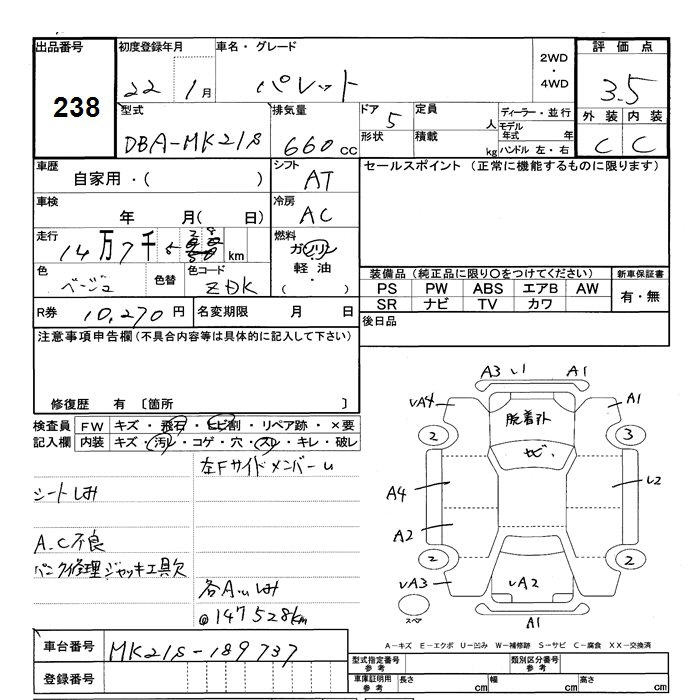 出品番号
238
初度登録年月
22 1月
車名・グレード
パレット
2WD
・
4WD
評価点
3.5
外装 内装
C C
型式
DBA-MK21S
排気量
660 cc
ドア 5
形状
定員 人
積載 kg
ディーラー・並行
モデル年式 年
ハンドル 左・右
車歴
自家用・( )
シフト
AT
セールスポイント (正常に機能するものに限ります)
車検
年 月( 日)
冷房
AC
走行
14万7千 km
燃料
ガソリン
軽油
・
( )
色
ベージュ
色替
色コード
ZDK
装備品 (純正品に限り○をつけてください)
PS PW ABS エアB AW
SR ナビ TV カワ
新車保証書
有・無
R券 10,270 円
名変期限 月 日
後日品
注意事項申告欄 (不具合内容等は具体的に記入して下さい)
修復歴 有 〔箇所 〕
検査員記入欄
FW キズ・飛石・ヒビ割・リペア跡・×要
内装 キズ・汚レ・コゲ・穴・スレ・キレ・破レ
左Fサイドメンバーu
シートしみ
A.C不良
パンク修理ジャッキ工具欠
各A.u しみ
@147528km
A3 A1
uA4 A1
脱着不
ヒビ
2 3
A4 U2
A2
2 2
uA3 uA2
スペア
A1
A－キズ E－エクボ U－凹み W－補修跡 S－サビ C－腐食 XX－交換済
車台番号 MK21S-189737
登録番号
型式指定番号 参考
類別区分番号 参考
車庫証明用 参考
長さ cm 幅 cm 高さ cm